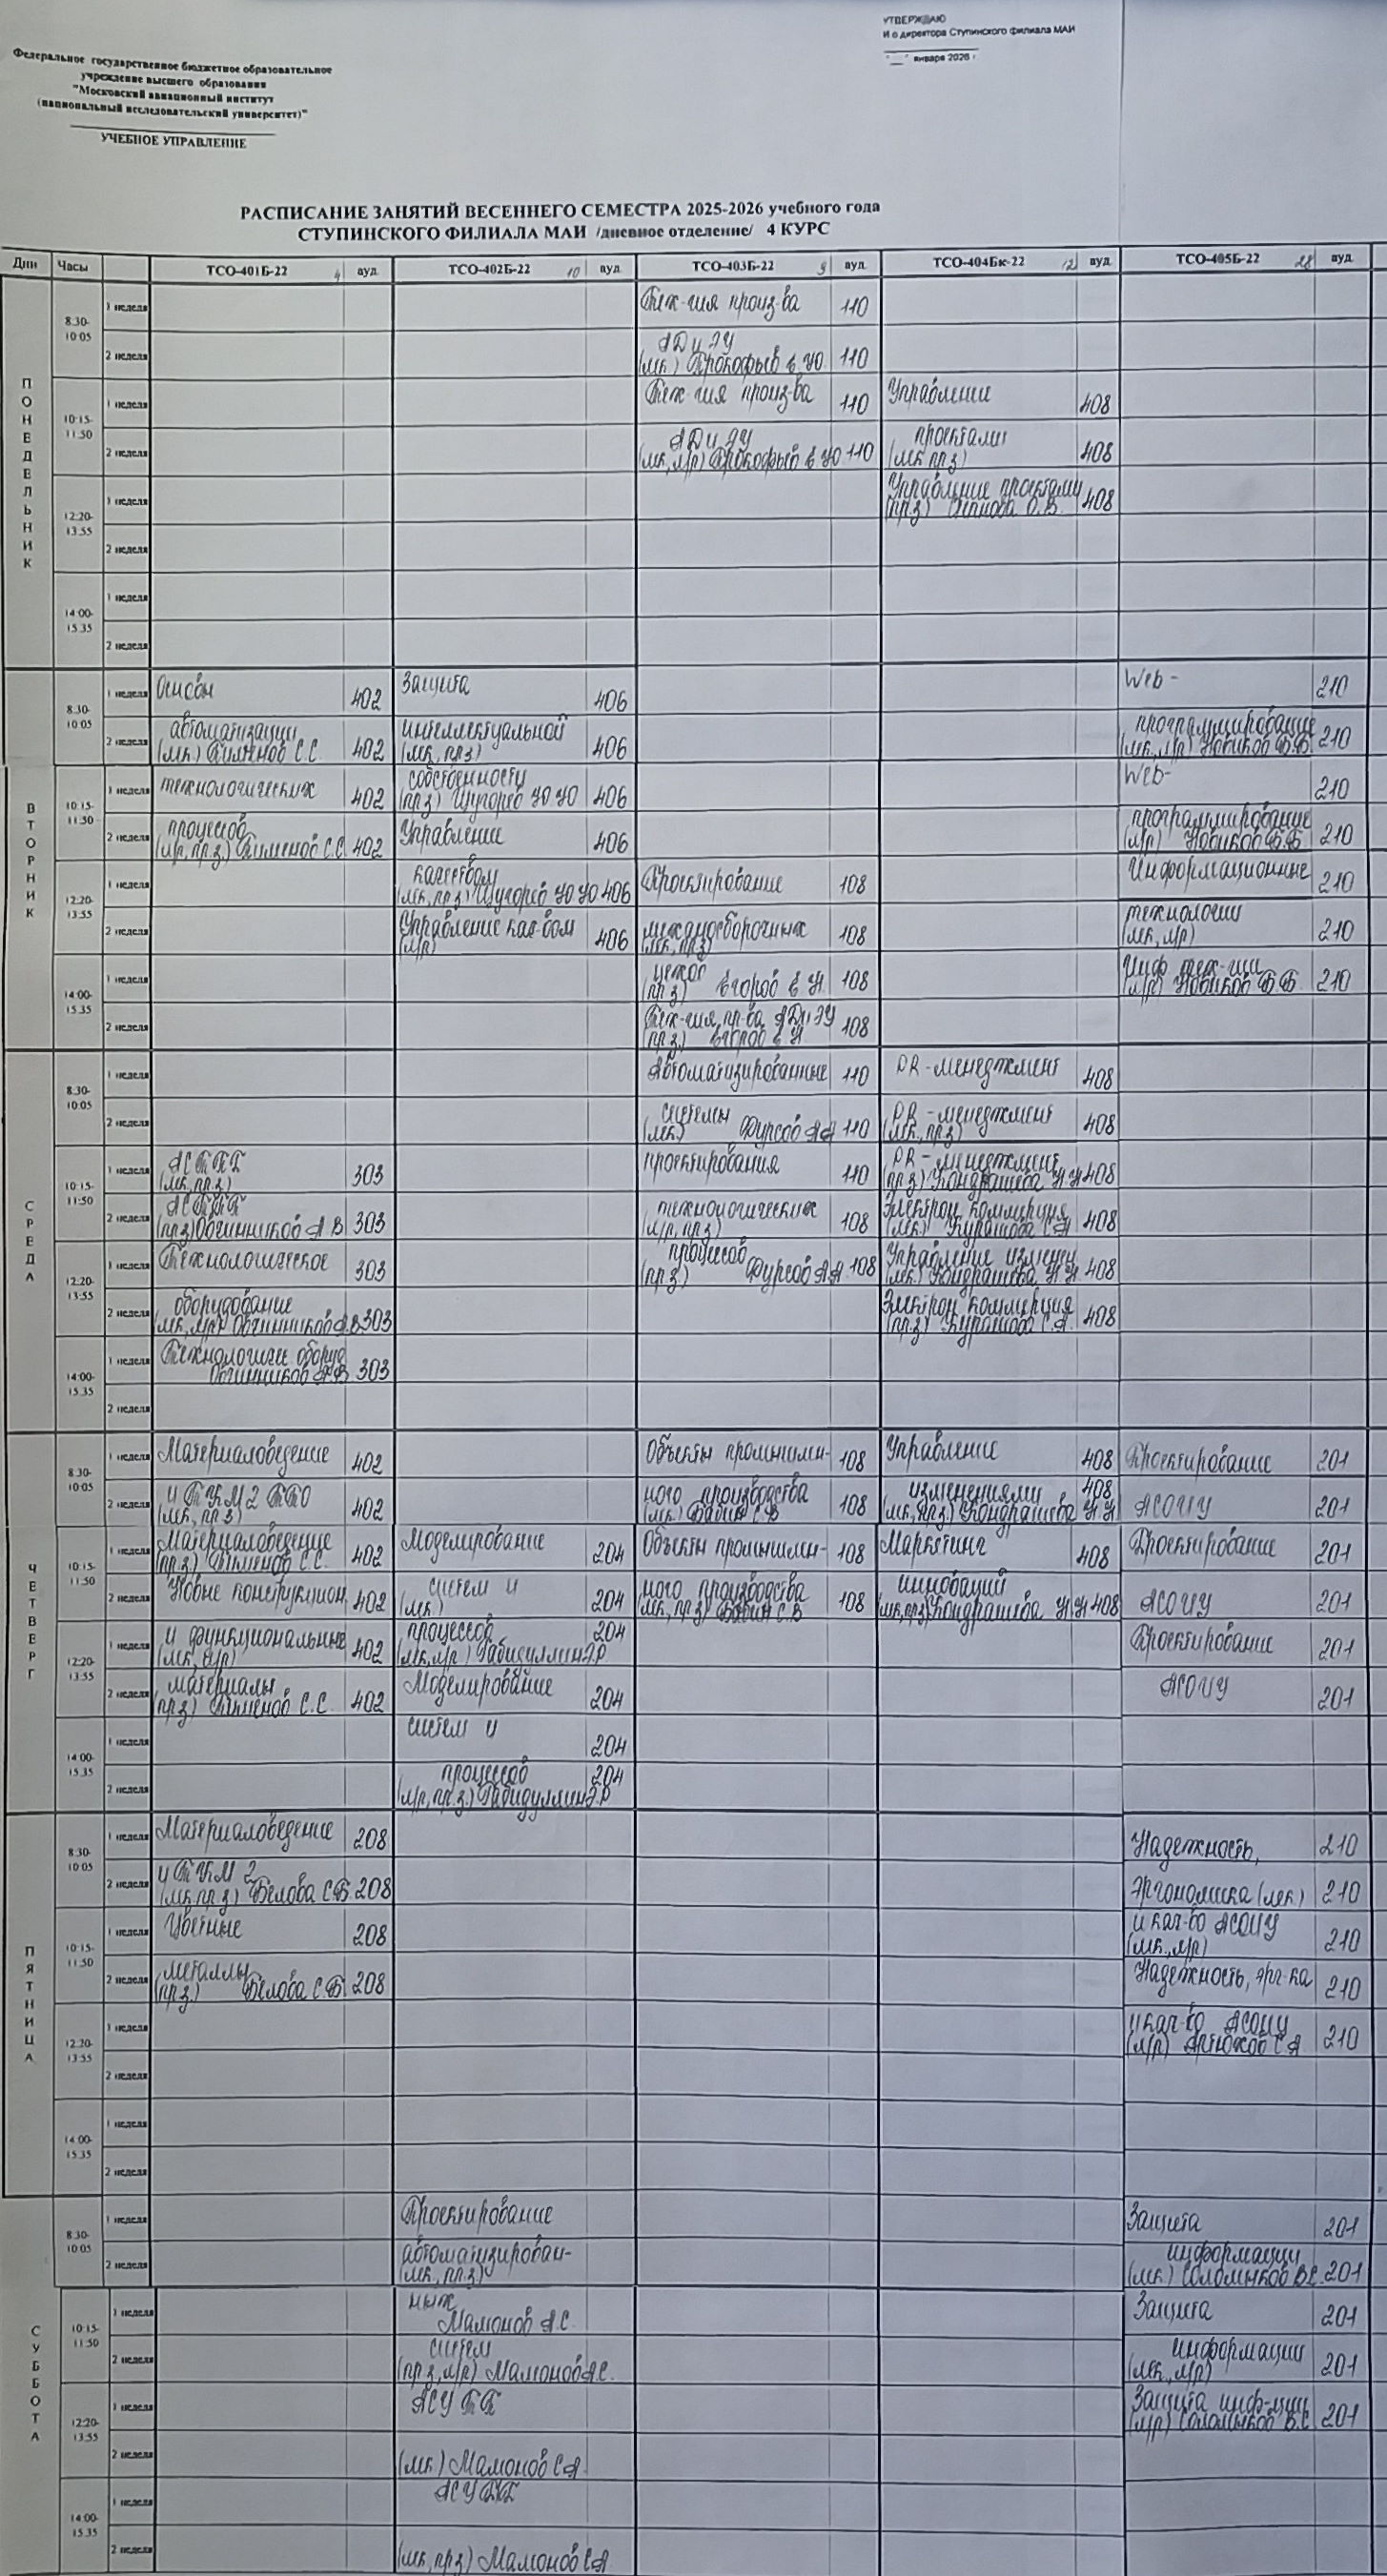 УТВЕРЖДАЮ
И о директора Ступинского филиала МАИ
"__" января 2026 г
Федеральное государственное бюджетное образовательное
учреждение высшего образования
"Московский авиационный институт
(национальный исследовательский университет)"
УЧЕБНОЕ УПРАВЛЕНИЕ
РАСПИСАНИЕ ЗАНЯТИЙ ВЕСЕННЕГО СЕМЕСТРА 2025-2026 учебного года
СТУПИНСКОГО ФИЛИАЛА МАИ /дневное отделение/ 4 КУРС
Дни Часы ТСО-401Б-22 4 ауд ТСО-402Б-22 10 ауд. ТСО-403Б-22 9 ауд. ТСО-404Бк-22 12 ауд. ТСО-405Б-22 28 ауд.
ПОНЕДЕЛЬНИК
8.30-10:05
1 неделя Тех-гия произ-ва 110
2 неделя АД и ЭУ (лк.) Прокофьев 110
10:15-11:50
1 неделя Тех-гия произ-ва 110 Управление 408
2 неделя АД и ЭУ (лк, л/р) Прокофьев 110 проектами (лк пр.з) 408
12:20-13:55
1 неделя Управление проектами (пр.з) О.В. 408
2 неделя
14:00-15.35
1 неделя
2 неделя
ВТОРНИК
8.30-10:05
1 неделя Основы 402 Защита 406 Web - 210
2 неделя автоматизации (лк.) Пименов С С 402 интеллектуальной (лк, пр.з) 406 программирование (лк, л/р) Новиков 210
10:15-11:50
1 неделя технологических 402 собственности (пр.з) Шугорев Ю Ю 406 Web- 210
2 неделя процессов (л/р, пр.з.) Пименов С.С. 402 Управление 406 программирование (л/р) Новиков 210
12:20-13:55
1 неделя качеством (лк, пр.з) Шугорев Ю Ю 406 Проектирование 108 Информационные 210
2 неделя Управление кач-вом (л/р) 406 механосборочных (лк, пр.з) 108 технологии (лк, л/р) 210
14:00-15.35
1 неделя цехов (пр.з) Егоров 108 Инф. тех-гии (л/р) Новиков 210
2 неделя Тех-гия пр-ва АД и ЭУ (пр.з.) Егоров 108
СРЕДА
8:30-10:05
1 неделя Автоматизированные 110 PR-менеджмент 408
2 неделя системы (лк) Фурсов А А 110 PR-менеджмент (лк, пр.з) 408
10:15-11:50
1 неделя АСТПП (лк, пр.з) 303 проектирования 110 PR-менеджмент (пр.з) Кондрашева 408
2 неделя АСТПП (пр.з) Овчинников А В 303 технологических (л/р, пр.з) 108 Электрон коммерция (лк) 408
12:20-13:55
1 неделя Технологическое 303 процессов (пр.з) Фурсов А А 108 Управление измен (лк) Кондрашева 408
2 неделя оборудование (лк, л/р) Овчинников А.В. 303 Электрон коммерция (пр.з) 408
14:00-15.35
1 неделя Технологическ оборуд Овчинников А В 303
2 неделя
ЧЕТВЕРГ
8:30-10:05
1 неделя Материаловедение 402 Объекты промышлен- 108 Управление 408 Проектирование 201
2 неделя и ТКМ 2 (лк, пр.з) 402 ного производства (лк) С.В 108 изменениями (лк, пр.з) Кондрашева 408 АСОИУ 201
10:15-11:50
1 неделя Материаловедение (пр.з) Пименов С.С. 402 Моделирование 204 Объекты промышлен- 108 Маркетинг 408 Проектирование 201
2 неделя Новые конструкцион. 402 систем и (лк) 204 ного производства (лк, пр.з) С.В 108 инноваций (лк, пр.з) Кондрашева 408 АСОИУ 201
12:20-13:55
1 неделя и функциональные (лк, л/р) 402 процессов (лк, л/р) Габидуллин Э.Р 204 Проектирование 201
2 неделя материалы (пр.з) Пименов С.С. 402 Моделирование 204 АСОИУ 201
14:00-15.35
1 неделя систем и 204
2 неделя процессов (л/р, пр.з.) Габидуллин Э.Р 204
ПЯТНИЦА
8:30-10:05
1 неделя Материаловедение 208 Надежность, 210
2 неделя и ТКМ 2 (лк пр.з) Белова С.Б. 208 эргономика (лек) 210
10:15-11:50
1 неделя Цветные 208 и кач-во АСОИУ (лк., л/р) 210
2 неделя металлы (пр.з.) Белова С.Б 208 Надежность, эрг-ка 210
12:20-13:55
1 неделя и кач-во АСОИУ (л/р) Артюхов С А 210
2 неделя
14:00-15.35
1 неделя
2 неделя
СУББОТА
8:30-10:05
1 неделя Проектирование Защита 201
2 неделя автоматизирован- (лк, пр.з) информации (лк) Соломыков В.С. 201
10:15-11:50
1 неделя ных Мамонов А.С. Защита 201
2 неделя систем (пр.з, л/р) Мамонов А.С. информации (лк, л/р) 201
12:20-13:55
1 неделя АСУТП Защита инф-ции (л/р) Соломыков В.С 201
2 неделя (лк) Мамонов С А
14:00-15.35
1 неделя АСУТП
2 неделя (лк, пр.з) Мамонов С А